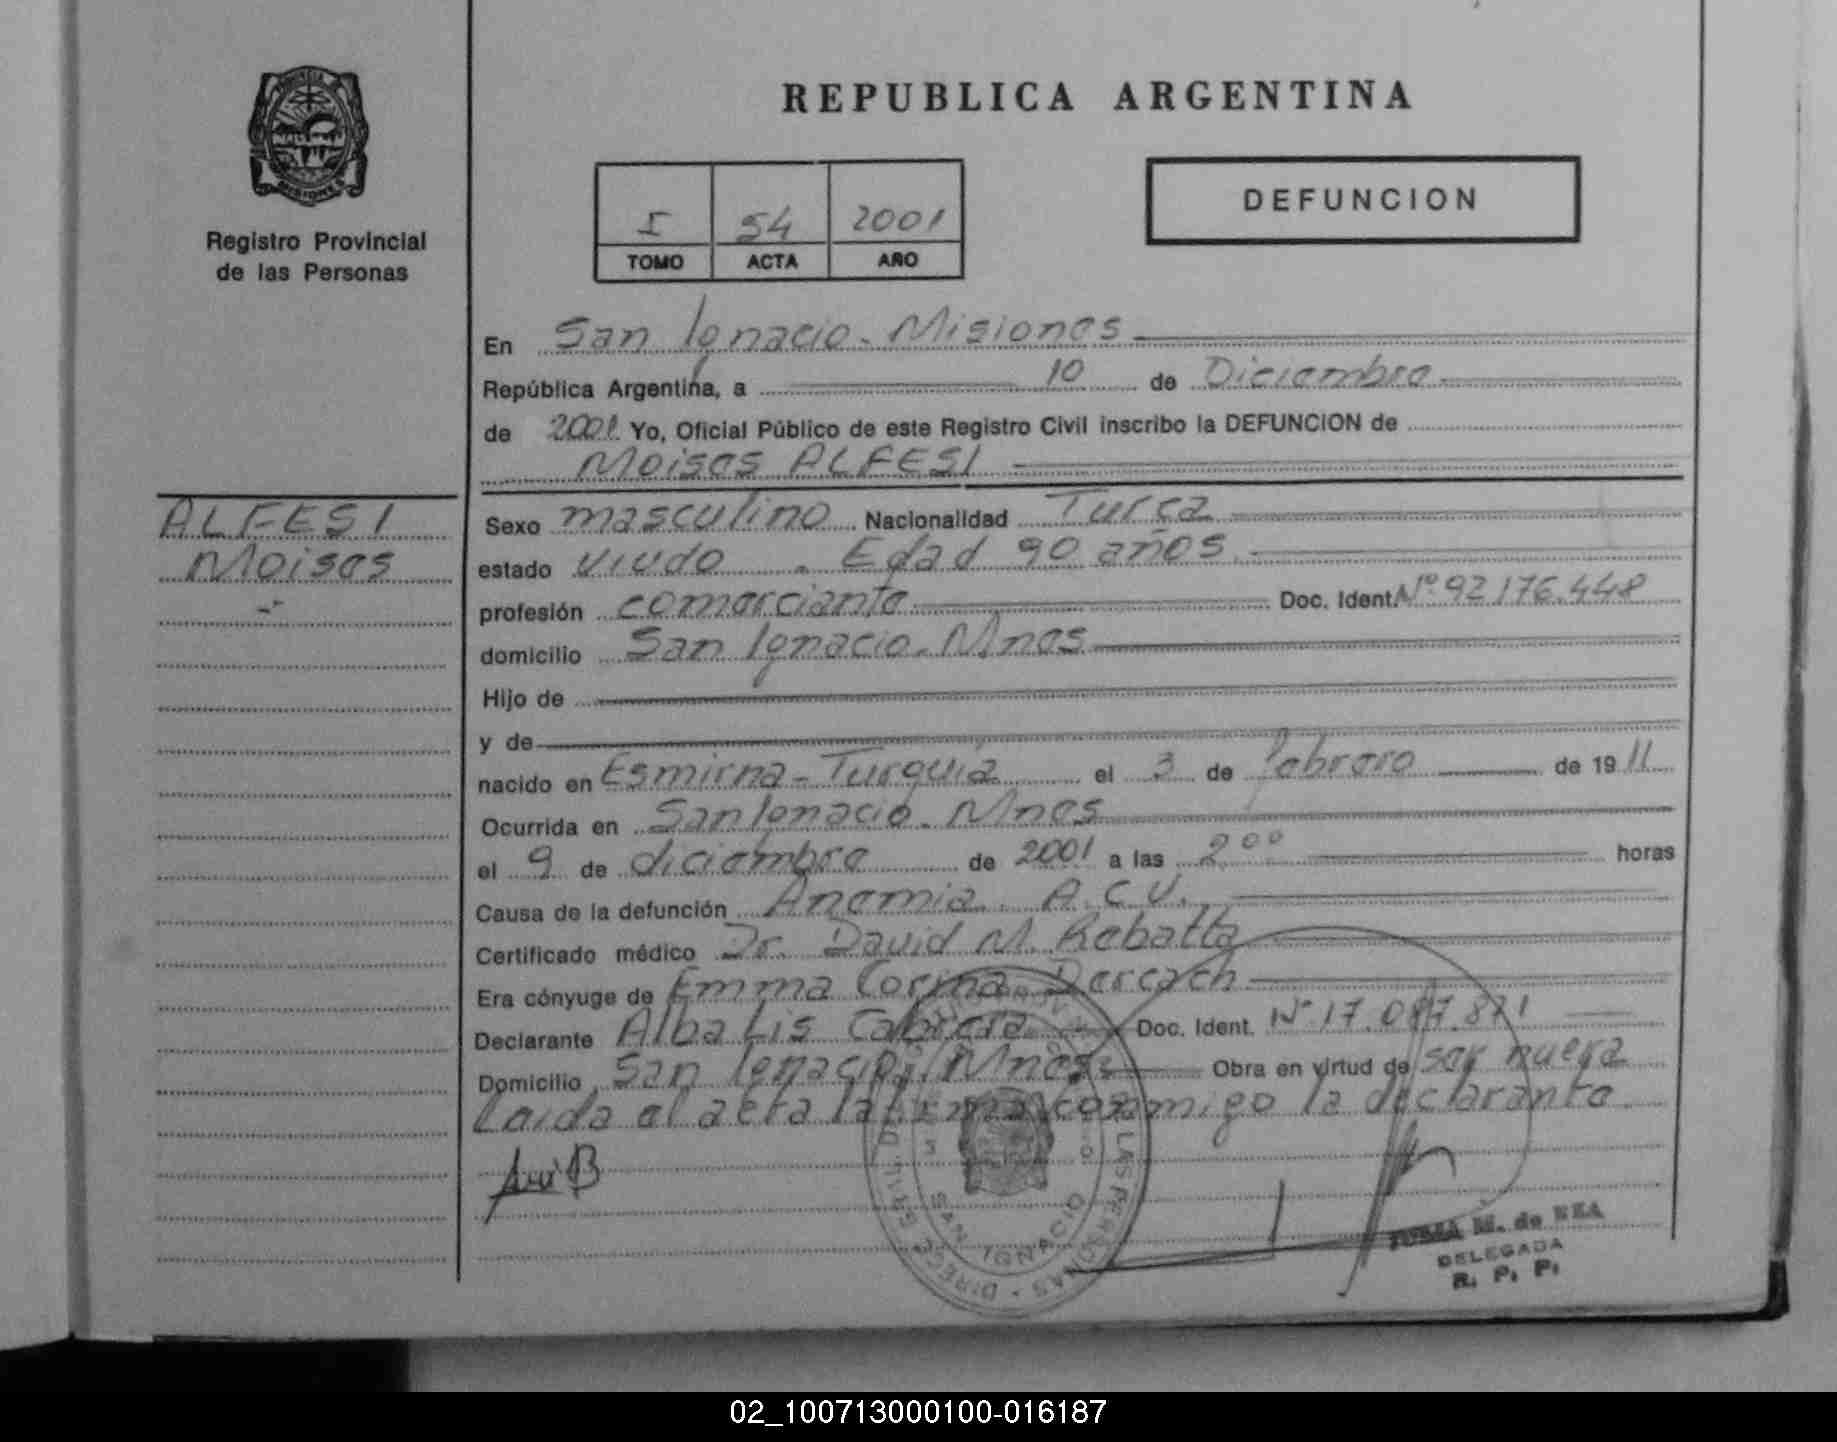 PROVINCIA DE
MISIONES
Registro Provincial
de las Personas
REPUBLICA ARGENTINA
I 54 2001
TOMO ACTA AÑO
DEFUNCION
En San Ignacio - Misiones
República Argentina, a 10 de Diciembre
de 2001 Yo, Oficial Público de este Registro Civil inscribo la DEFUNCION de
Moises ALFESI
ALFESI
Moises
Sexo masculino Nacionalidad Turca
estado viudo . Edad 90 años
profesión comerciante Doc. Ident. Nº 92.176.448
domicilio San Ignacio - Mnes
Hijo de
y de
nacido en Esmirna - Turquia el 3 de febrero de 1911
Ocurrida en San Ignacio - Mnes
el 9 de diciembre de 2001 a las 2⁰⁰ horas
Causa de la defunción Anemia. A.C.V.
Certificado médico Dr. David M. Rebatta
Era cónyuge de Emma Corina
Declarante Alba Lis Cabrera Doc. Ident. Nº 17.087.871
Domicilio San Ignacio, Mnes Obra en virtud de ser nuera
Leida el acta la firma conmigo la declarante
SAN IGNACIO
DE LAS PERSONAS - DIREC
M. de REA
DELEGADA
R. P. P.
02_100713000100-016187